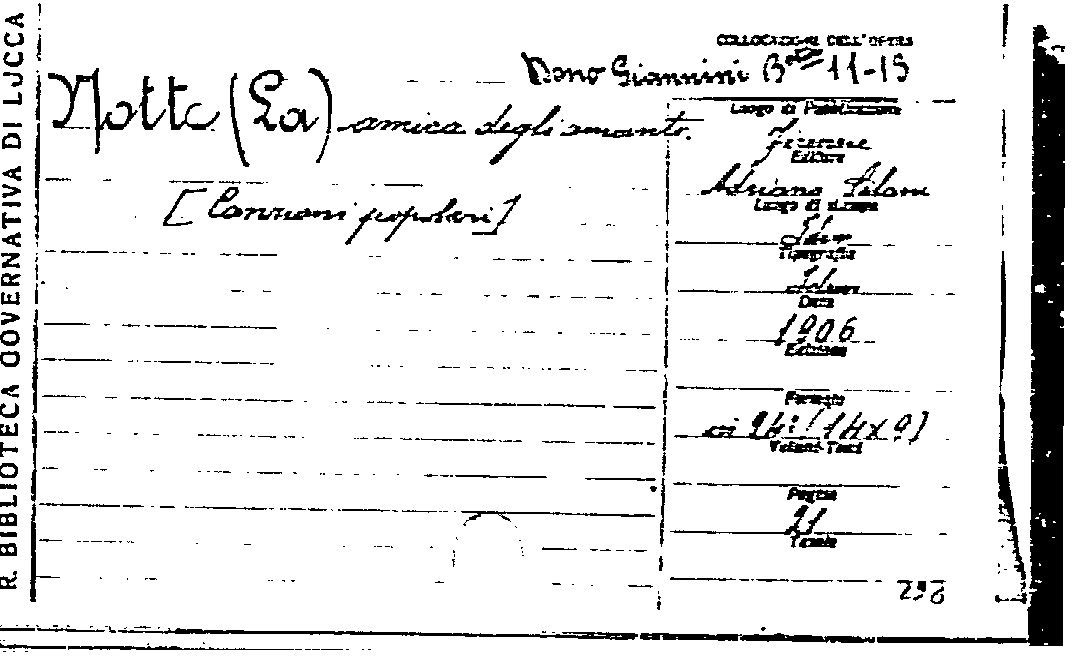 R. BIBLIOTECA GOVERNATIVA DI LUCCA
COLLOCAZIONE DELL'OPERA
Dono Giannini 11-15
Notte (La) amica degli amanti.
[Canzoni popolari]
Luogo di Pubblicazione
Firenze
Editore
Adriano Salani
Luogo di stampa
Idem
Tipografia
Salani
Data
1906
Edizione
Formato
in 24° (14x9)
Volumi-Tomi
Pagine
21
Tavole